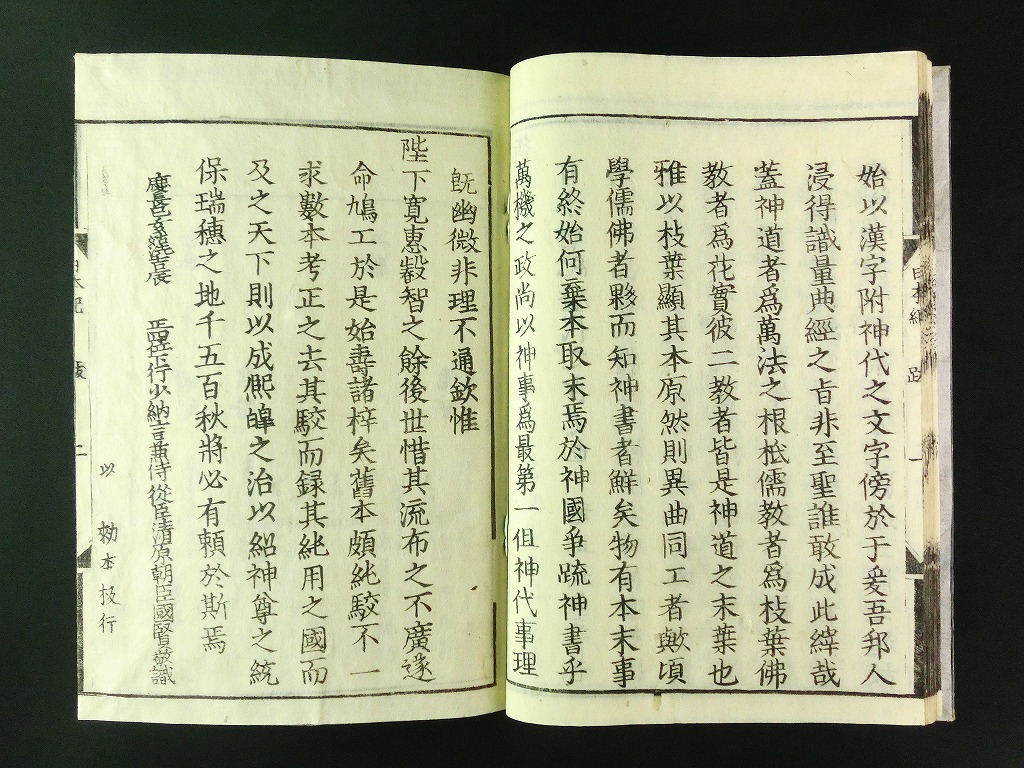 始以漢字附神代之文字傍於于爰吾邦人
浸得識量典經之旨非至聖誰敢成此縡哉
蓋神道者爲萬法之根柢儒教者爲枝葉佛
教者爲花實彼二教者皆是神道之末葉也
雅以枝葉顯其本原然則異曲同工者歟頃
學儒佛者夥而知神書者鮮矣物有本末事
有終始何棄本取末焉於神國爭疏神書乎
萬機之政尚以神事爲最第一伹神代事理
既幽微非理不通欽惟
陛下寛惠叡智之餘後世惜其流布之不廣遂
命鳩工於是始壽諸梓矣舊本頗純駁不一
求數本考正之去其駁而録其純用之國而
及之天下則以成熈皥之治以紹神尊之統
保瑞穗之地千五百秋將必有頼於斯焉
慶長 正四位下行少納言兼侍從臣清原朝臣國賢敬識
以 勅本技行
日本紀 跋 一